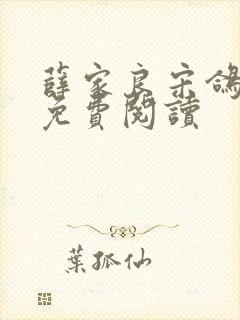 薛家良宋鴿
免費閱讀
葉孤仙